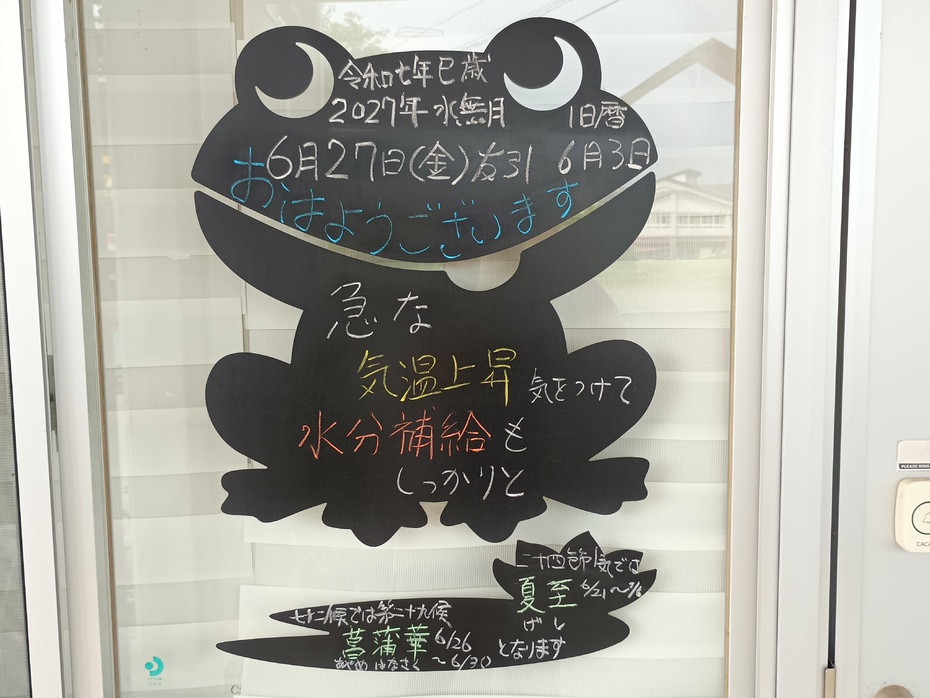 令和七年巳歳
2027年 水無月 旧暦
6月27日(金)友引 6月3日
おはようございます
急な
気温上昇 気をつけて
水分補給も
しっかりと
二十四節気では
夏至 6/21〜7/6
げし
となります
七十二候では第二十九候
菖蒲華 6/26
あやめ はなさく 〜6/30
PLEASE RING